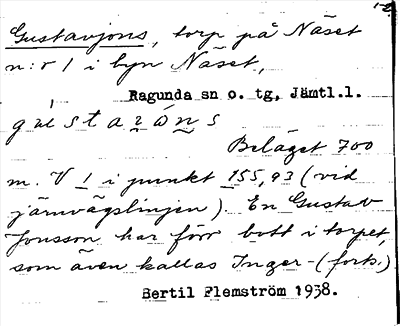 1-2.
Gustavjons, torp på Näset
n:r 1 i byn Näset,
Ragunda sn o. tg, Jämtl.l.
Beläget 700
m. V 1 i punkt 155,93 (vid
järnvägslinjen). En Gustav
Jonsson har förr bott i torpet,
som även kallas Inger- (forts.)
Bertil Flemström 1938.